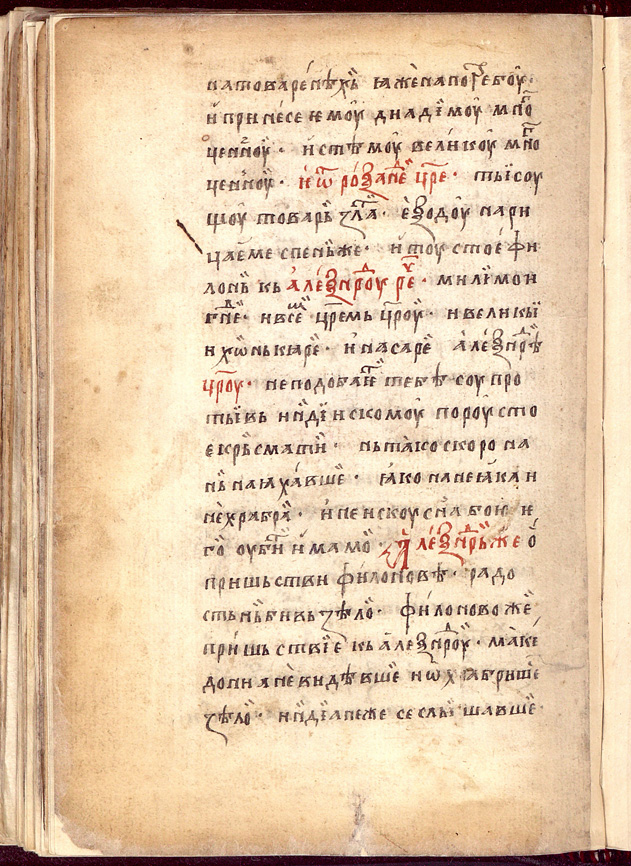 натоваре́нѣхь꙼ ꙗже напотрⷠебоу̑
и҆ принесе ѥмоу̑ диадїмоу̑ мⷩ҇о
цѣнноу̑ · и҆ стѣмоу̑ великоу̑ мⷩ҇о
цѣнноу̑ · и҆ ѿ ро́ѯандⷶе цр҃е · тыи соу
щоу товарь ꙁлⷮа · е҆ꙁодоу̑ нари
цаѥме спеньже · и҆ тоу стое́ фи
лонь къ а҆ле́ѯандⷣроу рⷱе · мили мои
гⷭ҇не · и все̏ цр҃емь цр҃оу̏ · и великы̏
и хѡ̏нькꙗре̏ · и҆ насаре̏ а҆ле́ѯндⷣрѣ
цр҃оу · неподобаⷮе тебѣ соу про
тыⷡь и҆ндїнскомоу̏ пороу̑ сто
е крьсмати̏ · нь тако скоро на
нь наꙗха́вше̏ · ꙗко на неꙗка и
не̏храбра̏ · и҆ пенскоу сⷩ҇а бою ѥ
го̏ оуби̏ и҆мамо̏ · А҆ле́ѯндⷣрьже ѡ҆
пришьстви филоновѣ̏ · радо
стьнь̏ бивь ꙁѣло̏ · филоново же̏
при́шьствїе къ а҆леѯндⷣроу̏ · маке́
дониане̏ видѣвше̏ и ѡхрабрише̏
ꙁѣло̏ · и҆ндїане же се слы̏шавше̏ ·